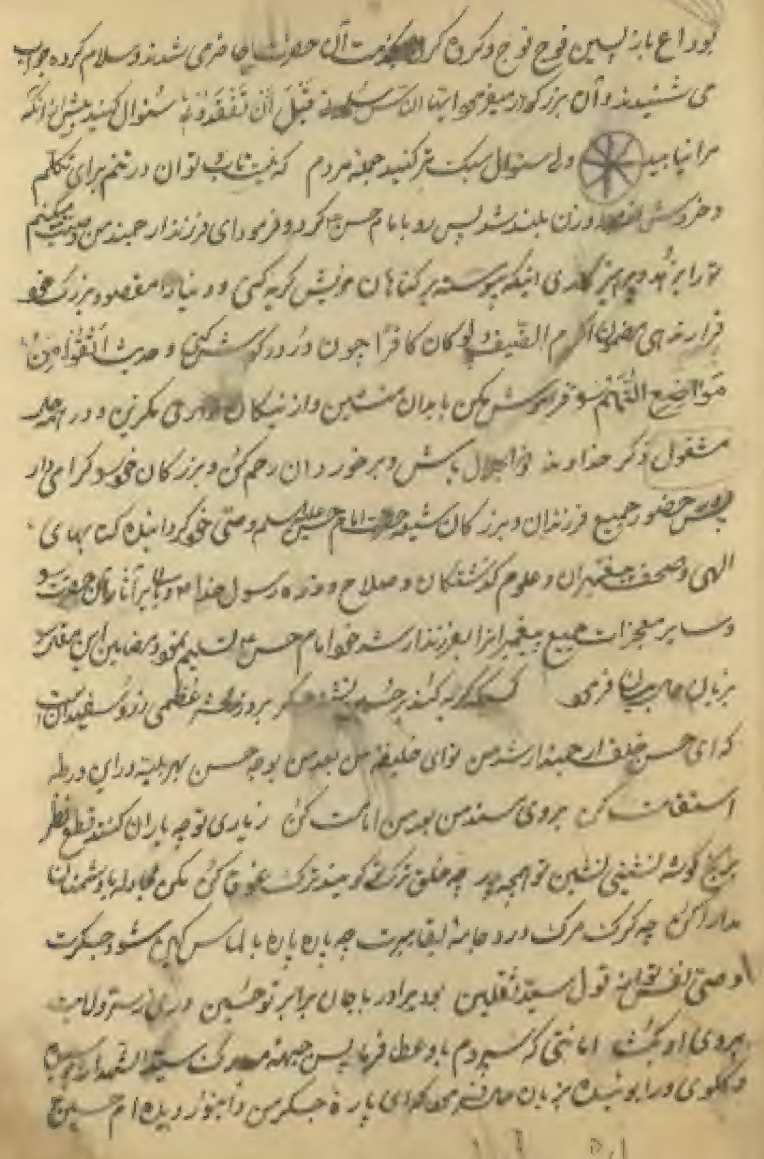 بوداع بازپسین فوج فوج و کروه کروه بخدمت آن حضرت حاضر می شدند و سلام کرده جواب
می شنیدند و آن بزرکوار میفرمود ایها الناس سلونی قبل ان تفقدونی سئوال کنید پیش از آنکه
مرا نیابید ولی سئوال سبک تر کنید جمله مردم که نیست تاب توان در تنم برای تکلم
و خروش از مرد و زن بلند شد پس رو بامام حسن کرد و فرمود ای فرزند ارجمند من وصیت میکنم
تو را بزهد و پرهیزکاری اینکه پیوسته بر کناهان خویش کریه کنی و دنیا را مقصود بزرک خود
قرار ندهی مضمون اکرم الضیف و لو کان کافرا چون در در کوش کنی و حدیث اتقوا من
مواضع التهم فراموش مکن با بدان منشین و از نیکان دوری مکزین و در همه حال
مشغول ذکر خداوند ذو الجلال باش و بر خوردان رحم کن و بزرکان خود کرامی دار
پس حضور جمیع فرزندان و بزرکان شیعه حضرت امام حسن علیه السلم وصی خود کردانیده کتابهای
الهی و صحف پیغمبران و علوم کذشتکان و سلاح و زره رسول خدا و سایر آثار آن حضرت
و سایر معجزات جمیع پیغمبران را بفرزند ارشد خود امام حسن تسلیم نمود و مضامین این
بزبان فرمود
که ای حسن خلف ارجمند ارشد من توای خلیفه من بعد من بوجه حسن بهر بلیه در این ورطه
استقامت کن بروی مسند من بعد من امامت کن ز یاری توجه یاران کنند قطع نظر
بکنج کوشه نشینی نشین تو همچو پدر چه خلق ترک تو کویند ترک غوغا کن مکن مجادله با دشمنان
مدارا کن چه کرک مرک درد جامه بقا ببرت چه پاره پاره بالماس کین شود جکرت
وصی نفس تو از قول سید ثقلین بود برادر با جان برابر تو حسین
پیروی او امانتی که سپردم باو عطا فرما پس جبهه مبارک سید الشهدا را بوسید
و کلوی او را بوئیده بزبان فرمود که ای پاره جکر من و ای نور دیده ام حسین